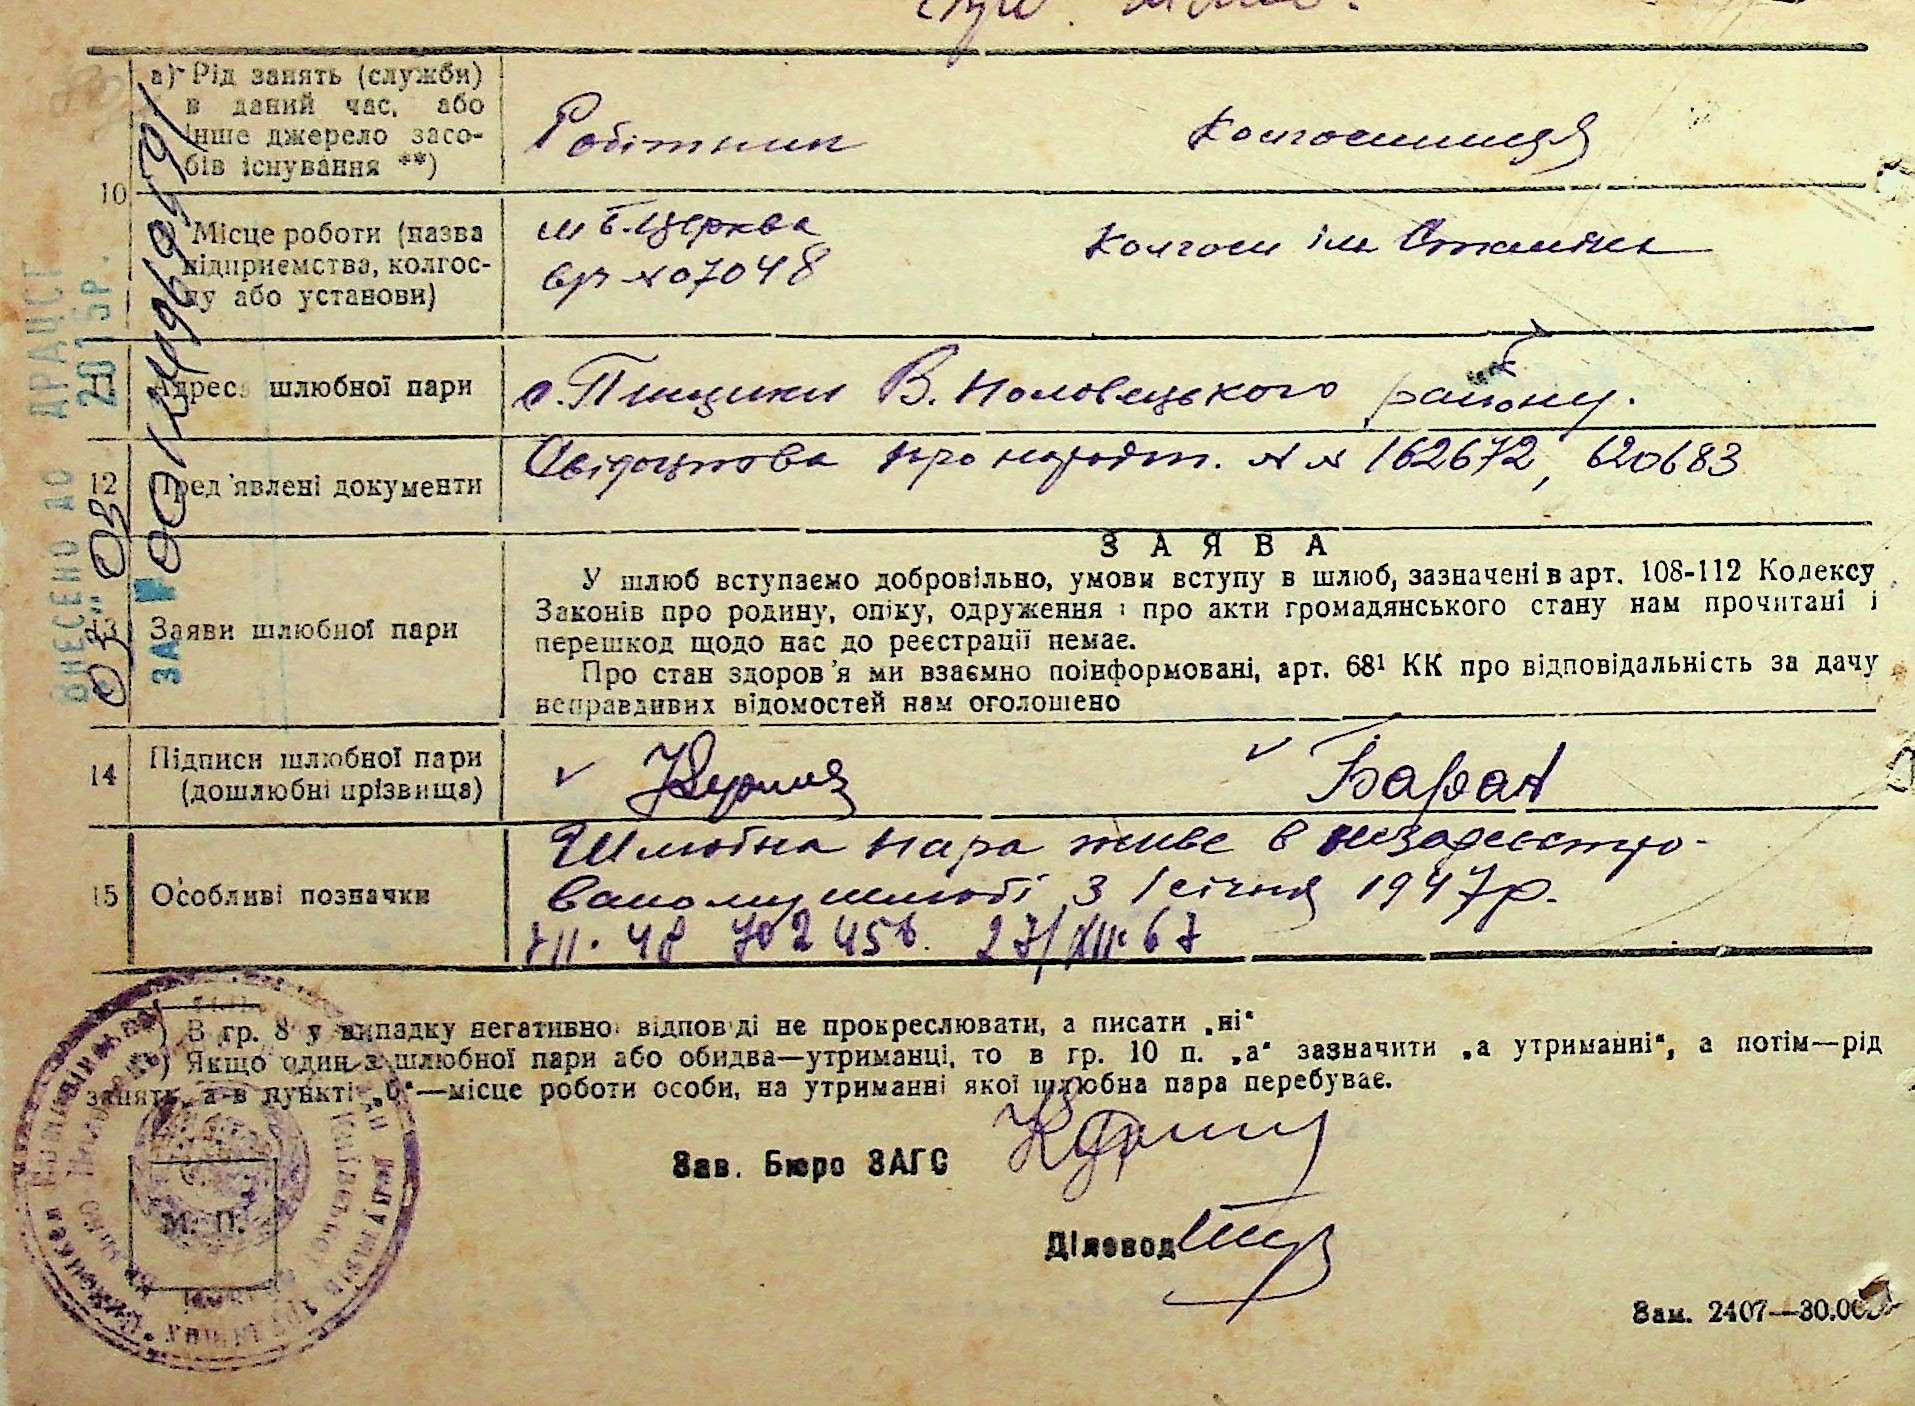 а) Рід занять (служби)
в даний час, або
інше джерело засо-
бів існування **)
Робітник
Колгоспниця
10
Місце роботи (назва
підприємства, колгос-
пу або установи)
м Б. Церква
вр №07048
Колгосп ім Сталіна
11
Адреса шлюбної пари
с. Пищики В. Половецького району.
12
Пред'явлені документи
Свідоцтва про народж. №№ 162672, 620683
ЗАЯВА
13
Заяви шлюбної пари
У шлюб вступаємо добровільно, умови вступу в шлюб, зазначені в арт. 108-112 Кодексу
Законів про родину, опіку, одруження і про акти громадянського стану нам прочитані і
перешкод щодо нас до реєстрації немає.
Про стан здоров'я ми взаємно поінформовані, арт. 68¹ КК про відповідальність за дачу
неправдивих відомостей нам оголошено
14
Підписи шлюбної пари
(дошлюбні прізвища)
Баран
15
Особливі позначки
Шлюбна пара живе в незареєстро-
ваному шлюбі з 1 січня 1947р.
48 702456. 27/XII-67
*) В гр. 8 у випадку негативної відповіді не прокреслювати, а писати „ні“
**) Якщо один з шлюбної пари або обидва—утриманці, то в гр. 10 п. „а“ зазначити „а утриманні“, а потім—рід
занять, а в пункті „б“—місце роботи особи, на утриманні якої шлюбна пара перебуває.
Зав. Бюро ЗАГС
Діловод
М. П.
Зам. 2407—30.00
ВНЕСЕНО ДО ДРАЦСГ
„03“ 03 2015р.
ЗА №